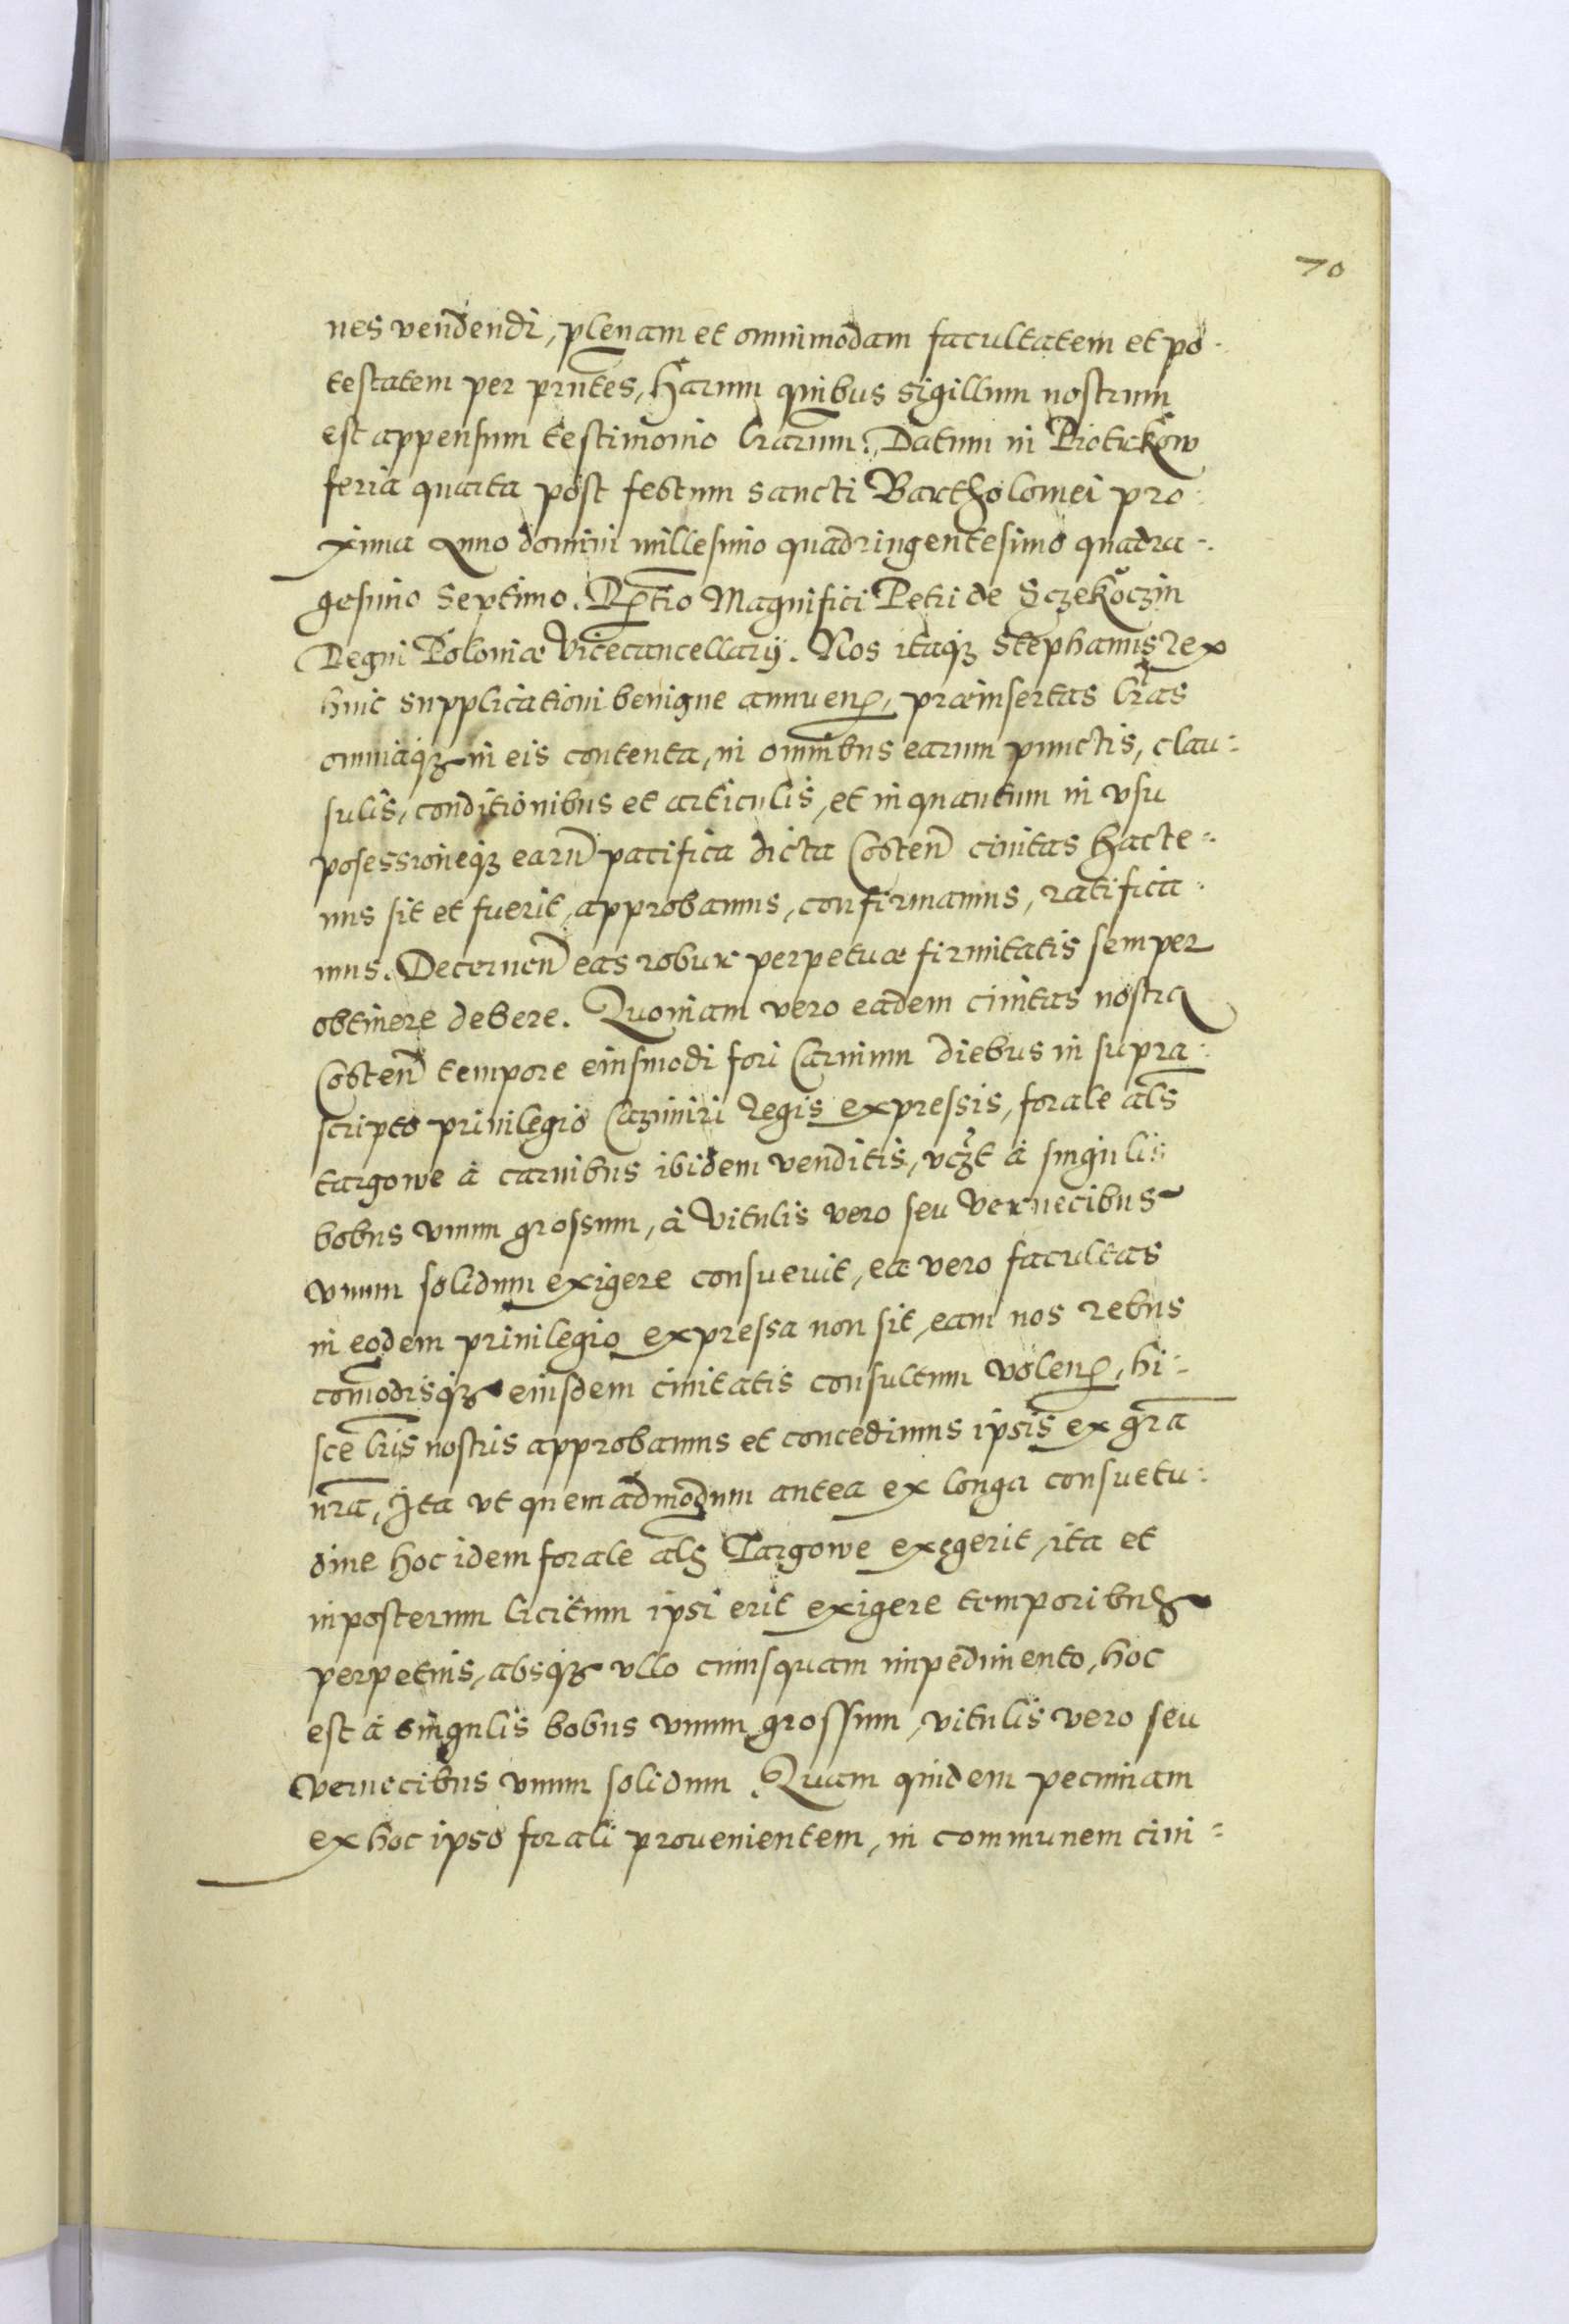 70
nes vendendi, plenam et omnimodam facultatem et po-
testatem per pr̃ntes, Harum quibus sigillum nostrum
est appensum testimonio lr̃arum. Datum in Piotrkow
feria quarta post festum sancti Bartholomei pro-
xima Anno domini millesimo quadringentesimo quadra-
gesimo septimo. R̃tio Magnifici Petri de Sczekoczin
Regni Poloniæ Vicecancellarij. Nos itaqꝫ Stephanus rex
huic supplicationi benigne annuen̄, præinsertas lr̃as
omniaqꝫ in eis contenta, in omnibus earum punctis, clau-
sulis, conditionibus et articulis, et in quantum in vsu
posessioneqꝫ earũ pacifica dicta Costeñ ciuitas hacte-
nus sit et fuerit, approbamus, confirmamus, ratifica-
mus. Decerneñ eas robur perpetuæ firmitatis semper
obtinere debere. Quoniam vero eadem ciuitas nostra
Costeñ tempore eiusmodi fori Carnium diebus in supra-
scripto priuilegio Cazimiri Regis expressis, forale als
targowe à carnibus ibidem venditis, vczt à singulis
bobus vnum grossum, à vitulis vero seu veruecibus
vnum solidum exigere consueuit, ea vero facultas
in eodem priuilegio expressa non sit, eam nos rebus
com̃odisqꝫ eiusdem ciuitatis consultum volen̄, hi-
sce lr̃is nostris approbamus et concedimus ipsis ex gr̃a
nr̃a, Ita vt quemadmodum antea ex longa consuetu-
dine hoc idem forale als Targowe exegerit, ita et
inposterum licitum ipsi erit exigere temporibus
perpetuis, absqꝫ vllo cuiusquam impedimento, hoc
est à singulis bobus vnum grossum, vitulis vero seu
veruecibus vnum solidum. Quam quidem pecuniam
ex hoc ipso forali prouenientem, in communem ciui-